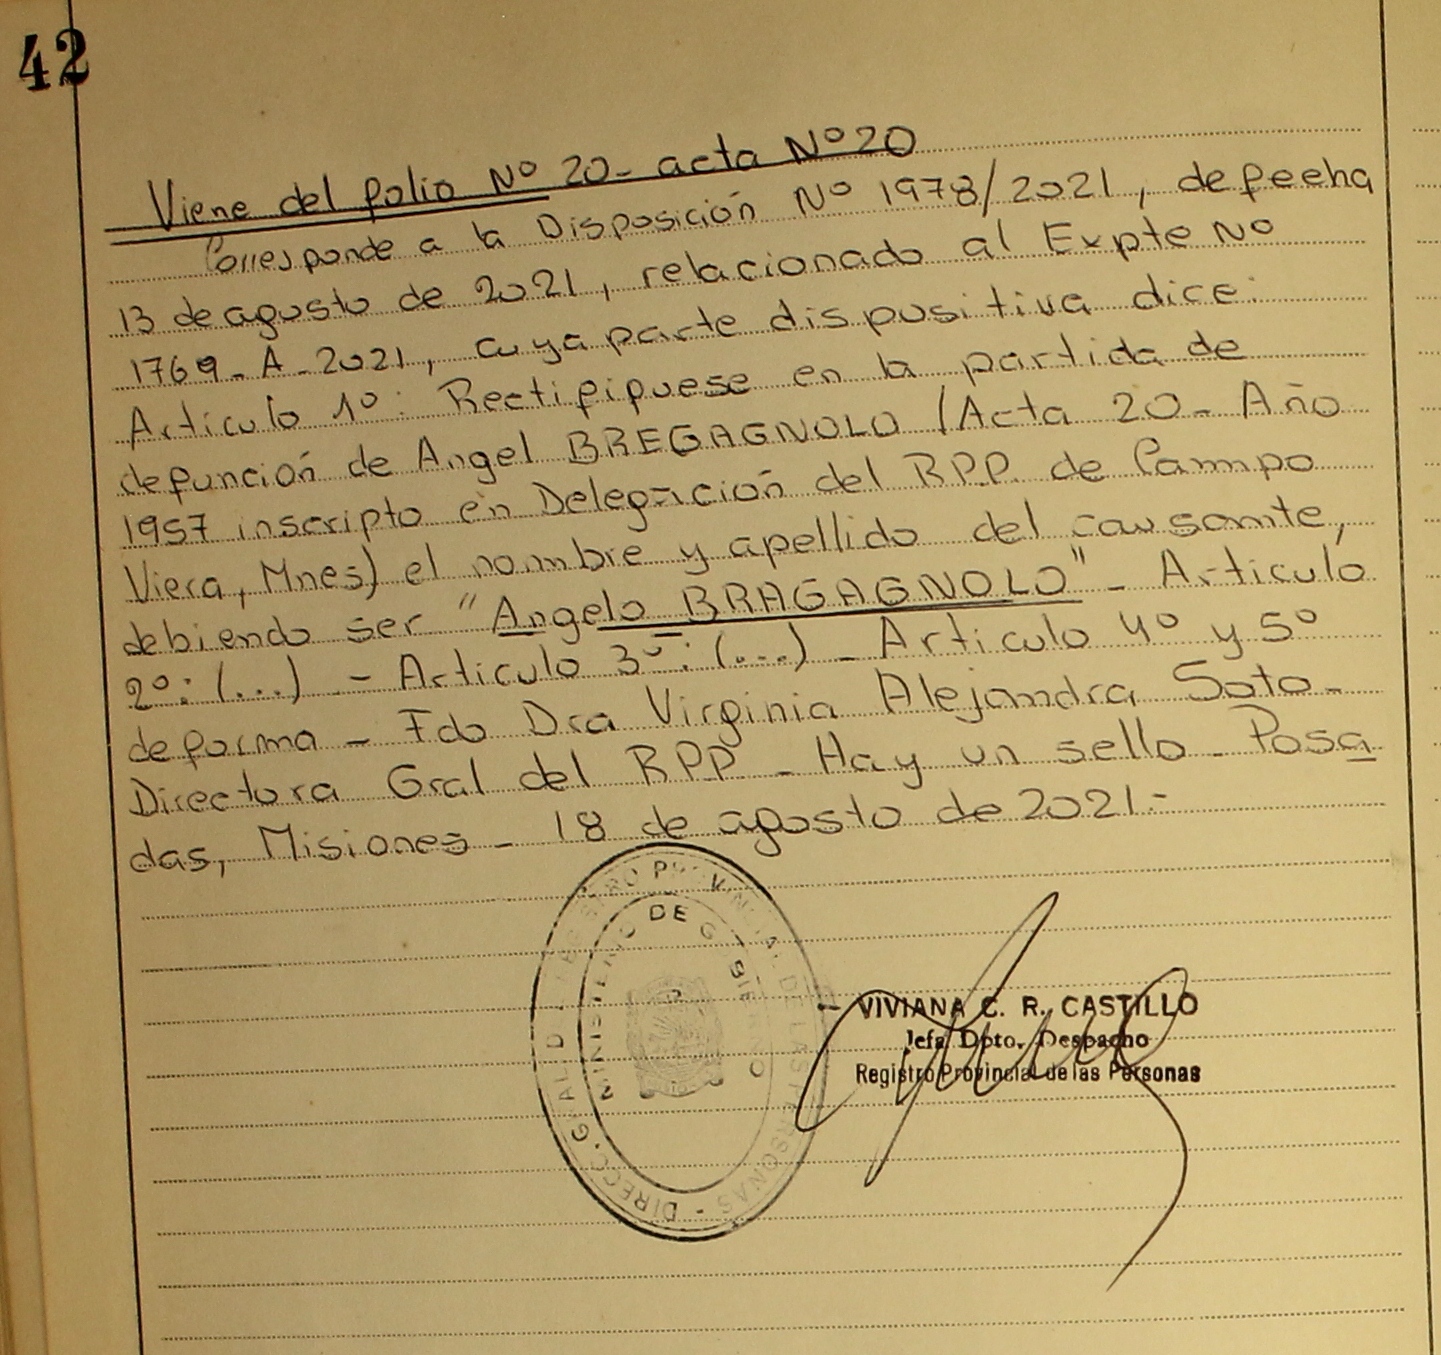 42
Viene del folio Nº 20 - acta Nº 20
Corresponde a la Disposición Nº 1978/2021, de fecha
13 de agosto de 2021, relacionado al Expte Nº
1769 - A - 2021, cuya parte dispositiva dice:
Artículo 1º: Rectifiquese en la partida de
defunción de Angel BREGAGNOLO (Acta 20 - Año
1957 inscripto en Delegación del RPP. de Campo
Viera, Mnes) el nombre y apellido del causante,
debiendo ser "Angelo BRAGAGNOLO" - Artículo
2º: (...) - Artículo 3º: (...) - Artículo 4º y 5º
de forma - Fdo Dra Virginia Alejandra Soto -
Directora Gral del RPP - Hay un sello - Posa
das, Misiones - 18 de agosto de 2021.-
DIRECC. GRAL. D REGISTRO PROVINCIAL DE LAS PERSONAS -
MINISTERIO DE GOBIERNO
VIVIANA C. R. CASTILLO
Jefa Dpto. Despacho
Registro Provincial de las Personas